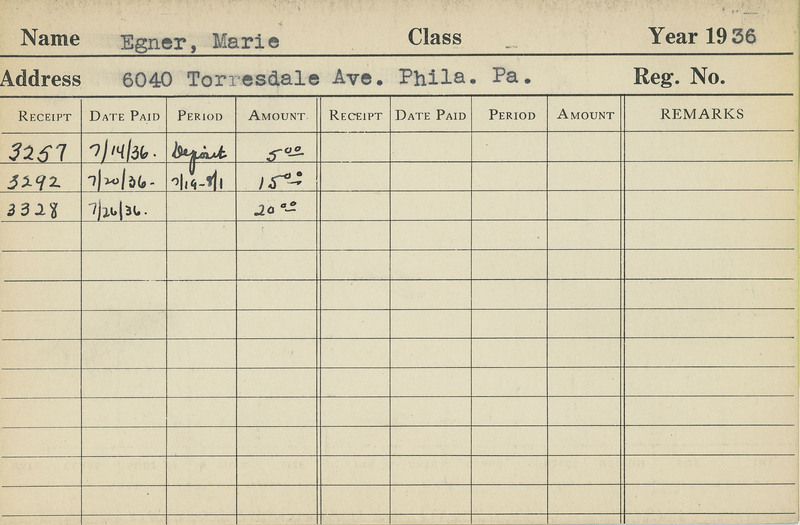 Name Egner, Marie Class Year 1936
Address 6040 Torresdale Ave. Phila. Pa. Reg. No.
Receipt Date Paid Period Amount Receipt Date Paid Period Amount REMARKS
3257 7/14/36. Deposit 5 00
3292 7/20/36- 7/19-8/1 15 00
3328 7/26/36. 20 00